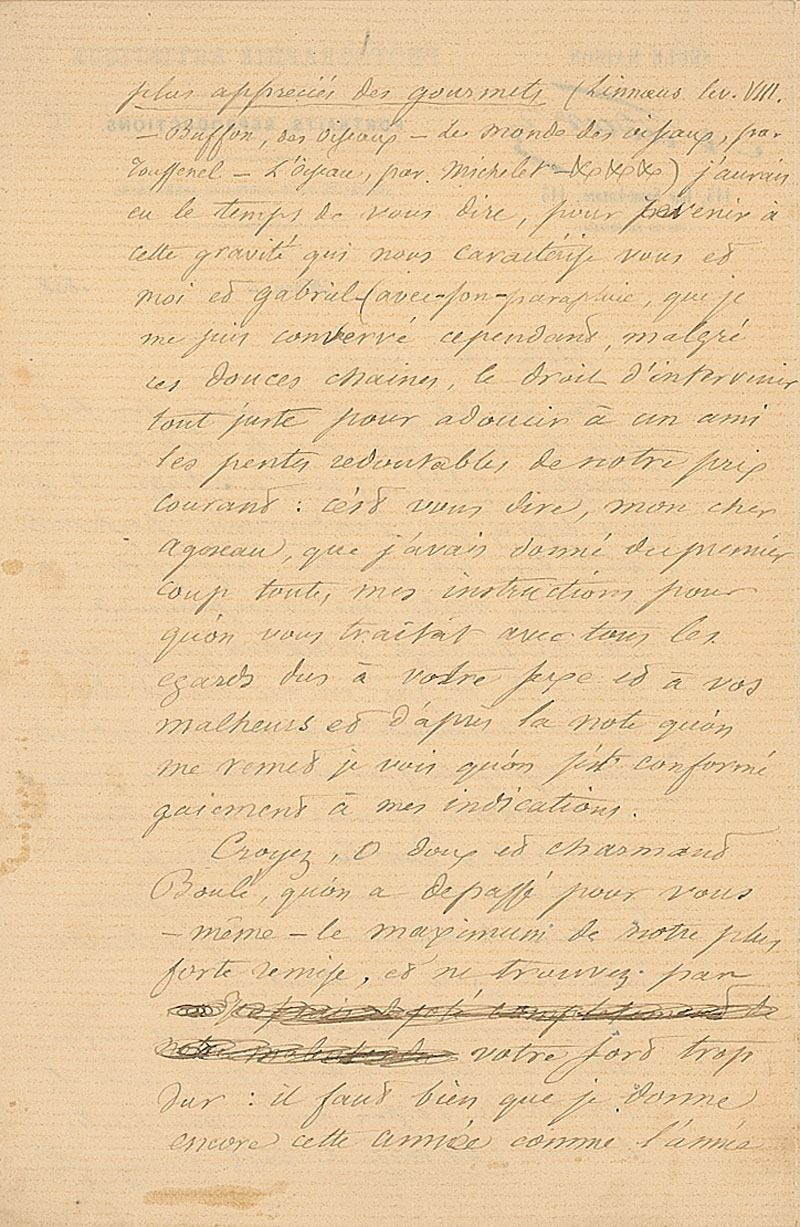 plus appreciés des gourmets (Linnæus liv. VIII.
– Buffon, des oiseaux – Le monde des oiseaux, par
Toussenel – L'Oiseau, par Michelet – &x &x &x) j'aurais
eu le temps de vous dire, pour revenir à
cette gravité qui nous caractérise vous et
moi et Gabriel-(avec-son-parapluie, que je
me suis conservé cependant, malgré
ces douces chaines, le droit d'intervenir
tout juste pour adoucir à un ami
les pentes redoutables de notre prix
courant : c'ést vous dire, mon cher
Agoreau, que j'avais donné du premier
coup toutes mes instructions pour
qu'on vous traitât avec tous les
egards dus à votre sexe et à vos
malheurs et d'après la note qu'on
me remet je vois qu'on s'est conformé
gaiement à mes indications.
Croyez, O doux et charmant
Boulé, qu'on a depassé pour vous
– même – le maximum de notre plus
forte remise, et ne trouvez par
votre sort trop
dur : il faut bien que je donne
encore cette année comme l'année